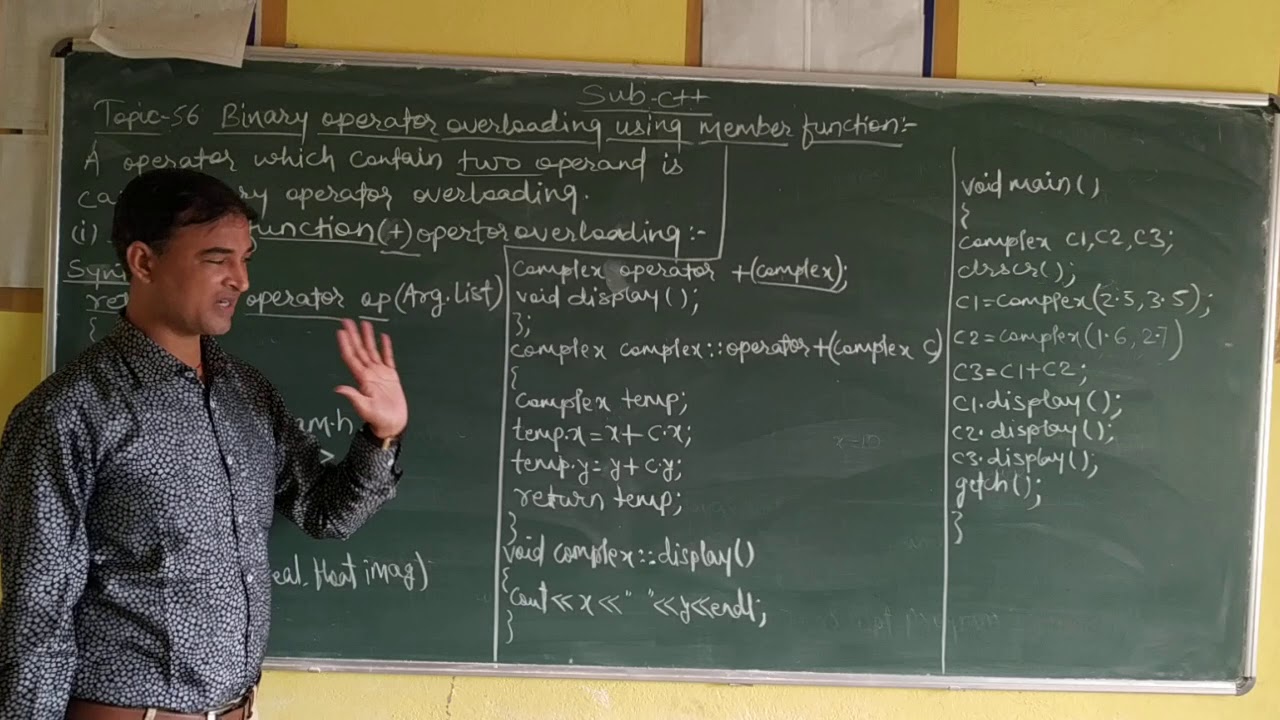 Sub-C++
Topic-56 Binary operator overloading using member function:-
A operator which contain two operand is
operator overloading.
(i) function(+) opertor overloading:-
operator op (Arg. List)
{
eal, float imag)
complex operator +(complex);
void display();
};
complex complex::operator+(complex c)
{
complex temp;
temp.x=x+c.x;
temp.y=y+c.y;
return temp;
}
void complex::display()
{
cout<<x<<" "<<y<<endl;
}
void main()
{
complex C1,C2,C3;
clrscr();
C1=complex(2.5,3.5);
C2=complex(1.6,2.7)
C3=C1+C2;
C1.display();
C2.display();
C3.display();
getch();
}